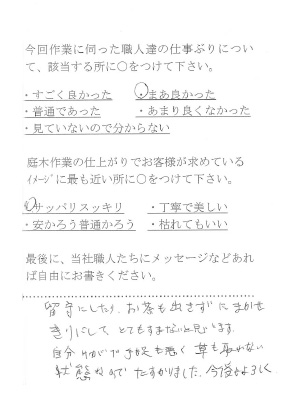 今回作業に伺った職人達の仕事ぶりについ
て、該当する所に○をつけて下さい。
・すごく良かった ・まあ良かった
・普通であった ・あまり良くなかった
・見ていないので分からない
庭木作業の仕上がりでお客様が求めている
ｲﾒｰｼﾞに最も近い所に○をつけて下さい。
・サッパリスッキリ ・丁寧で美しい
・安かろう普通かろう ・枯れてもいい
最後に、当社職人たちにメッセージなどあれ
ば自由にお書きください。
留守にしたり、お茶も出さずにまかせ
きりにして とてもすまないと思います。
自分 手足も悪く 草も取れない
状態なので たすかりました。今後もよろしく